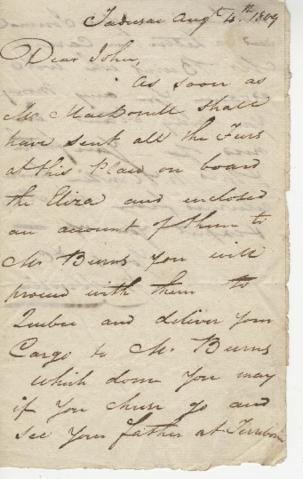 Tadusac Augt 4th 1809
Dear John,
As soon as
Mr MacDonell shall
have sent all the Furs
at this place on board
the Eliza and enclosed
an account of them to
Mr Burns you will
proceed with them to
Quebec and deliver your
Cargo to Mr Burns
which done you may
if you chuse go and
see your father at